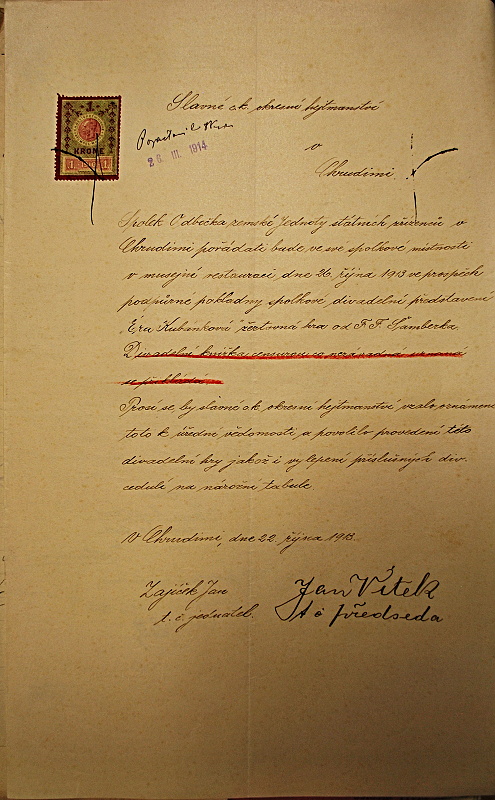 1
KRONE
1 1
Slavné c.k. okresní hejtmanství
26 III. 1914
v
Chrudimi
Spolek Odbočka zemské Jednoty státních zřízenců v
Chrudimi pořádati bude ve své spolkové místnosti
v musejní restauraci, dne 26. října 1913 ve prospěch
podpůrné pokladny spolkové, divadelní představení
Éra Kubánkova žertovná hra od F. F. Šamberka.
Divadelní knížka censurou co nezávadná uznaná
se přikládá.
Prosí se by slavné c.k. okresní hejtmanství vzalo oznámení
toto k úřední vědomosti a povolilo provedení této
divadelní hry jakož i vylepení příslušných div.
cedulí na nárožní tabule.
V Chrudimi, dne 22. října 1913.
Zajíček Jan
t. č. jednatel.
Jan Vítek
t č předseda